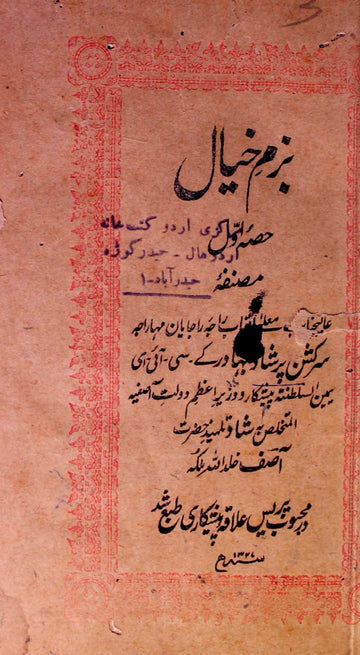 3
بزم خیال
حصۂ اوّل
مرکزی اردو کتب خانہ
اردو ہال - حیدر گوڑہ
حیدرآباد - ۱
مصنفۂ
معلی القاب راجہ راجایان مہاراجہ
سرکشن پرشاد بہادر کے - سی - آئی - ای
یمین السلطنتہ پیشکار و وزیر اعظم دولت آصفیہ
المتخلص بہ شاد تلمیذ حضرت
آصف خلد اللہ ملکہ
در محبوب پریس علاقہ پیشکاری طبع شد
سنہ ۱۳۲۷ھ